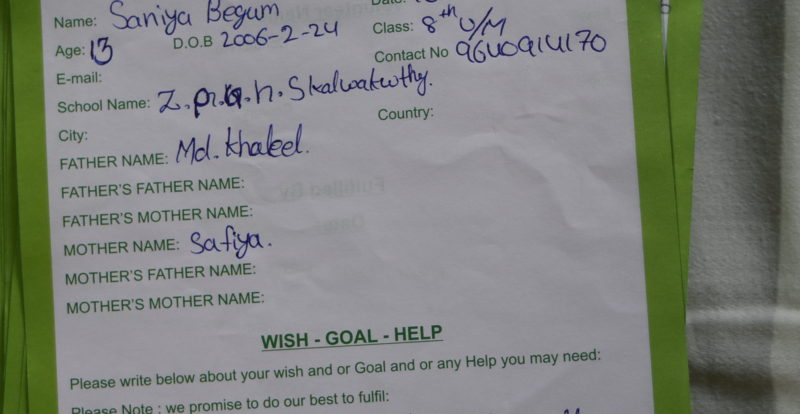 Name: Saniya Begum
Age: 13 D.O.B 2006-2-24 Class: 8th U/M
E-mail: Contact No 9640914170
School Name: Z.p.G.h. Skalwakwthy.
City: Country:
FATHER NAME: Md. Khaleel.
FATHER'S FATHER NAME:
FATHER'S MOTHER NAME:
MOTHER NAME: Safiya.
MOTHER'S FATHER NAME:
MOTHER'S MOTHER NAME:
WISH - GOAL - HELP
Please write below about your wish and or Goal and or any Help you may need:
Please Note : we promise to do our best to fulfil: